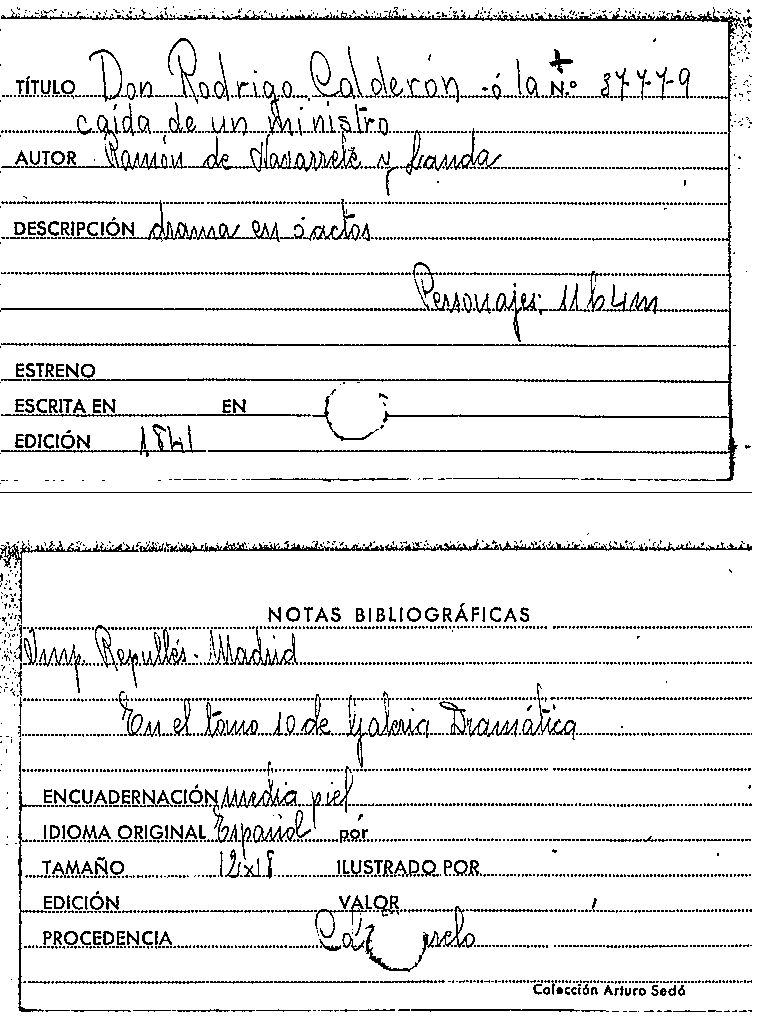 TÍTULO Don Rodrigo Calderón - ó la N.º 37779
caída de un ministro
AUTOR Ramón de Navarrete y Landa
DESCRIPCIÓN drama en 5 actos
Personajes: 11 h 4 m
ESTRENO
ESCRITA EN EN
EDICIÓN 1841
NOTAS BIBLIOGRÁFICAS
Imp. Repullés - Madrid
En el tomo 10 de Galeria Dramática
ENCUADERNACIÓN media piel
IDIOMA ORIGINAL Español por
TAMAÑO 12x18 ILUSTRADO POR
EDICIÓN VALOR
PROCEDENCIA
Colección Arturo Sedó